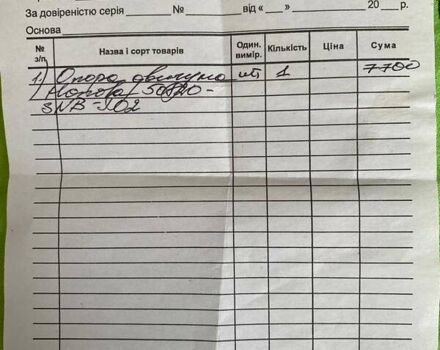 За довіреністю серія № від « » 20 р.
Основа
№ з/п Назва і сорт товарів Один. вимір. Кількість Ціна Сума
1) Опора двигуна шт 1 7700
50820-
SNB-J02